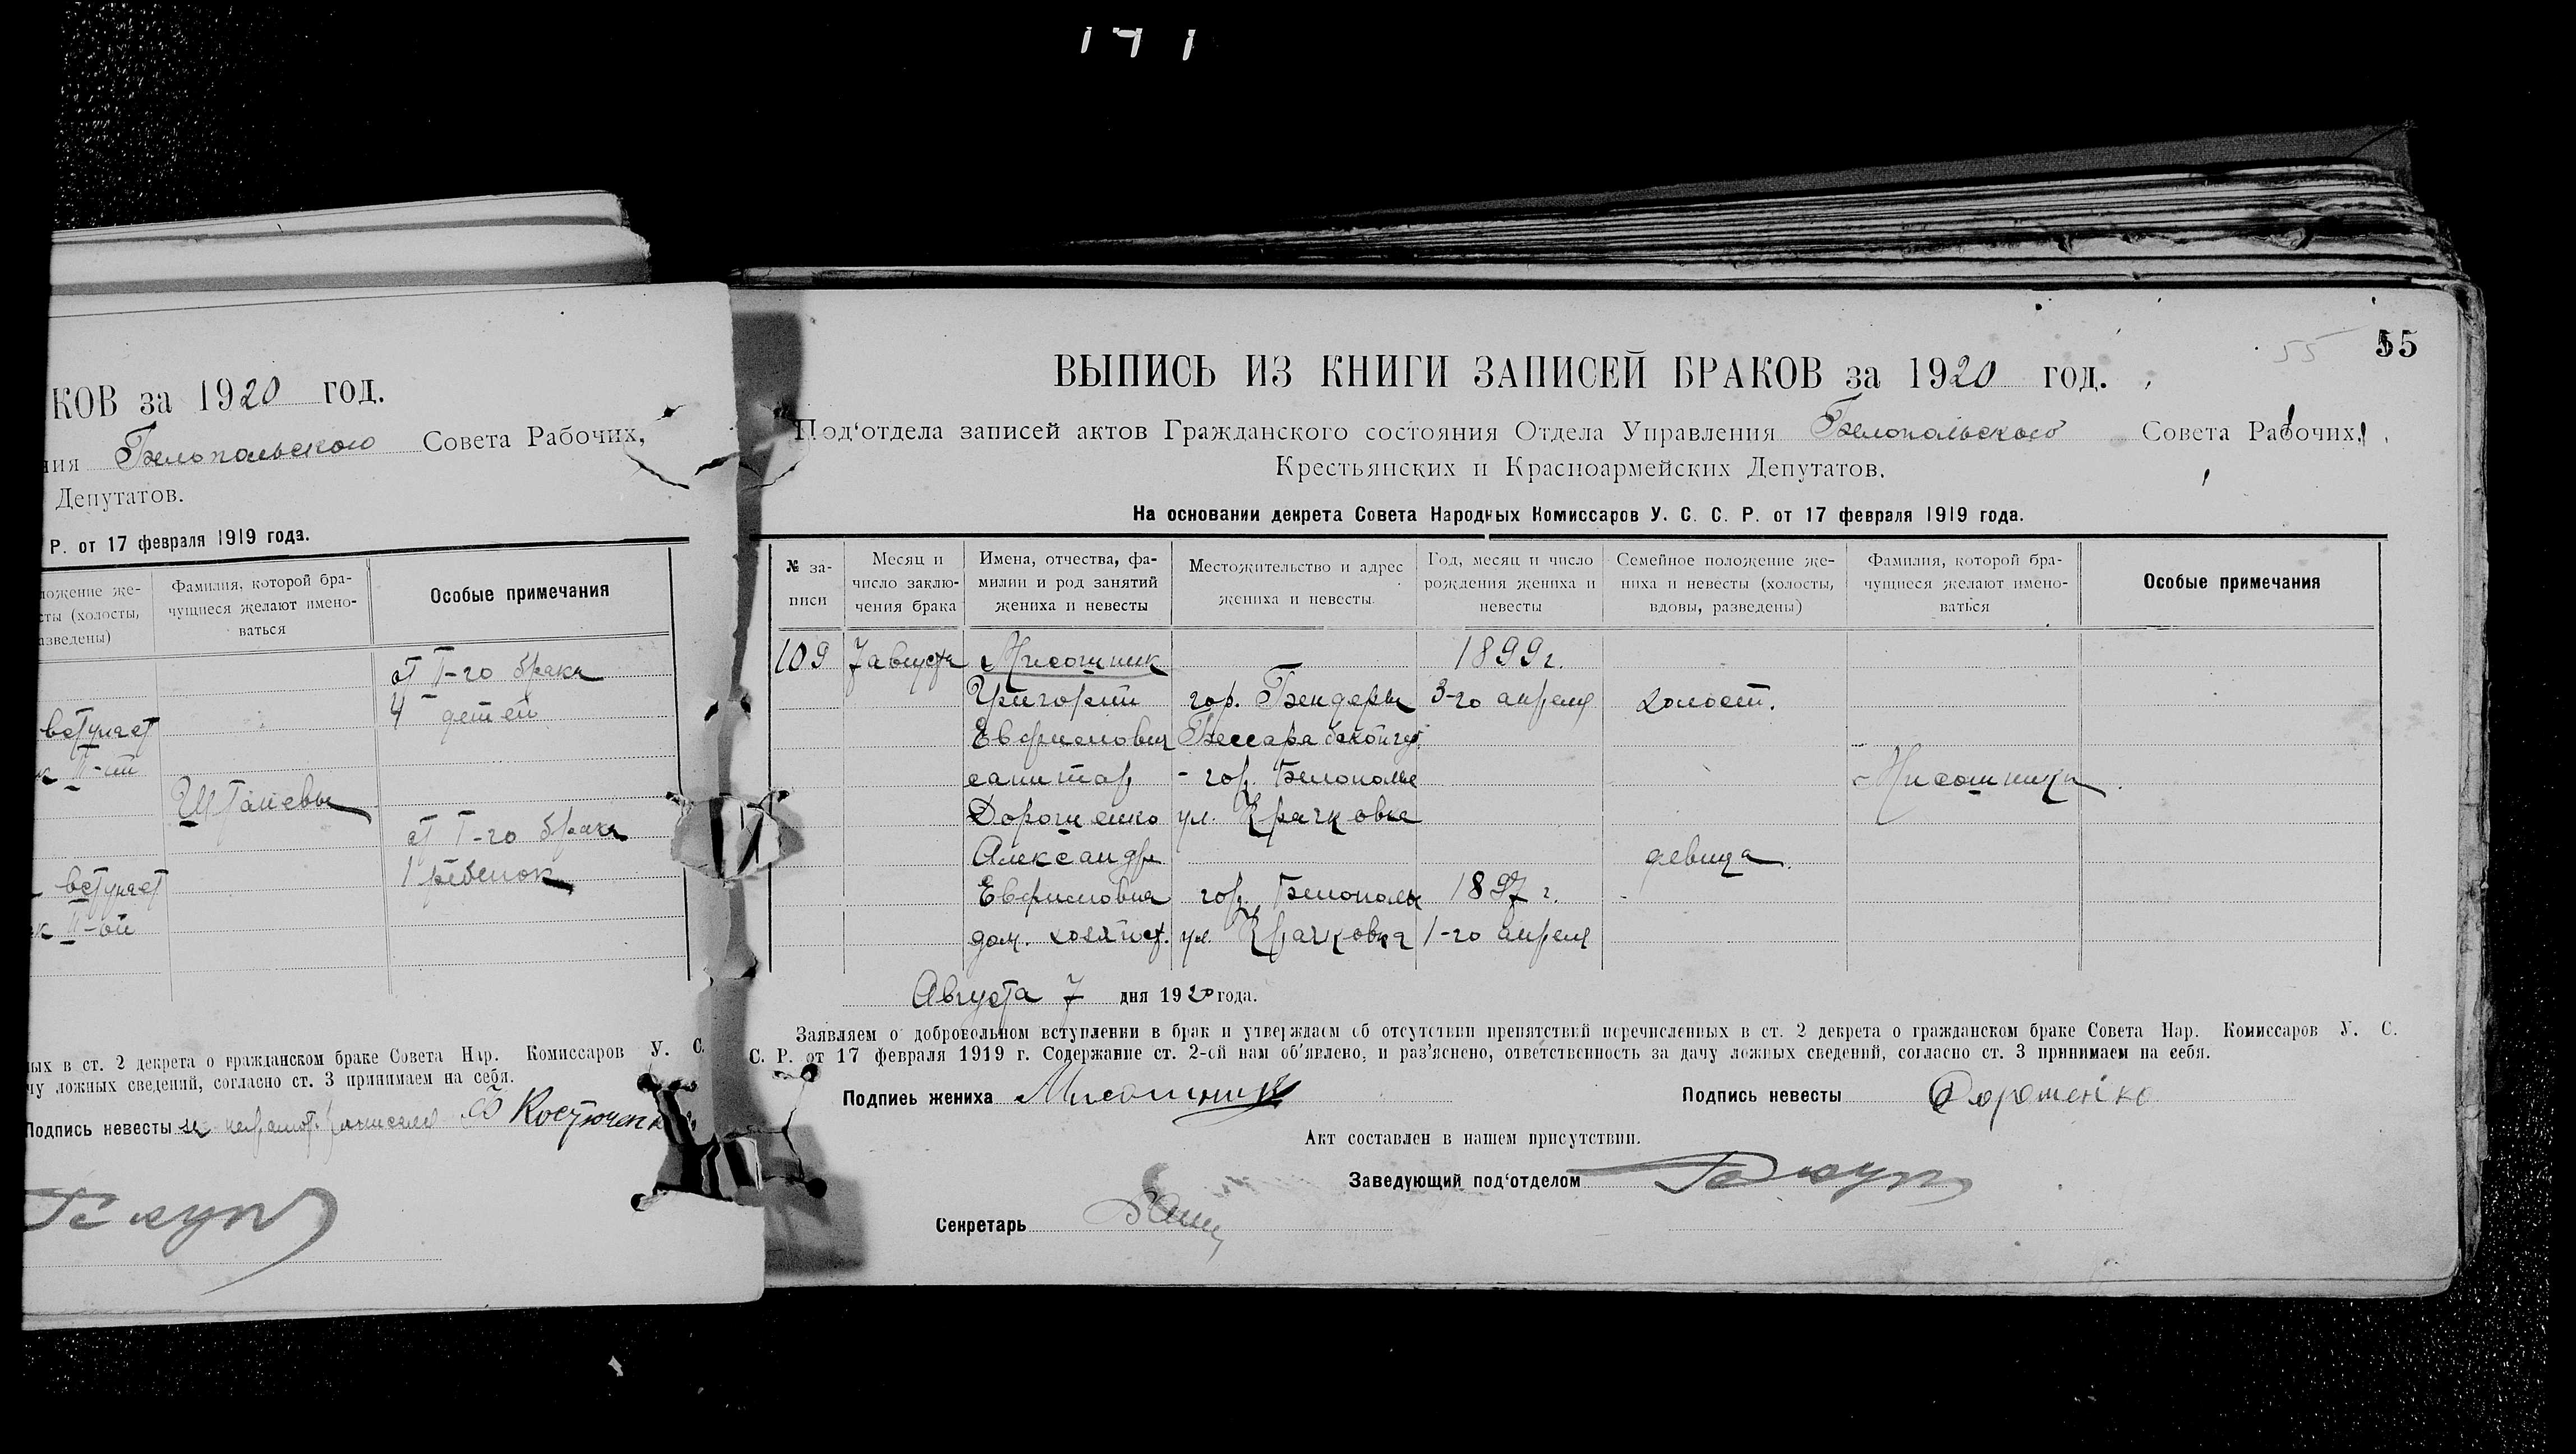 171
КОВ за 1920 год.
ния Белопольского Совета Рабочих,
Депутатов.
Р. от 17 февраля 1919 года.
ложение же-
сты (холосты,
азведены)
Фамилия, которой бра-
чущиеся желают имено-
ваться
Особые примечания
от I-го брака
4 детей
вступает
к II-ий
Штаневы
от I-го брака
1 ребенок
вступает
к II-ой
ных в ст. 2 декрета о гражданском браке Совета Нар. Комиссаров У. С.
чу ложных сведений, согласно ст. 3 принимаем на себя.
Подпись невесты за неграмот. Костюченк
55 55
ВЫПИСЬ ИЗ КНИГИ ЗАПИСЕЙ БРАКОВ за 1920 год.
Под'отдела записей актов Гражданского состояния Отдела Управления Белопольского Совета Рабочих,
Крестьянских и Красноармейских Депутатов.
На основании декрета Совета Народных Комиссаров У. С. С. Р. от 17 февраля 1919 года.
№ за-
писи
Месяц и
число заклю-
чения брака
Имена, отчества, фа-
милии и род занятий
жениха и невесты
Местожительство и адрес
жениха и невесты.
Год, месяц и число
рождения жениха и
невесты
Семейное положение же-
ниха и невесты (холосты,
вдовы, разведены)
Фамилия, которой бра-
чущиеся желают имено-
ваться
Особые примечания
109 7 августа Мисошник 1899 г.
Григорий гор. Бендеры 3-го апреля холост.
Бессарабской губ.
санитар - гор. Белополье Мисошники
Дорошенко ул. Крачковка
Александра девица
гор. Белополье 1897 г.
дом. хозяйст. ул. Крачковка 1-го апреля
Августа 7 дня 1920 года.
Заявляем о добровольном вступлении в брак и утверждаем об отсутствии препятствий перечисленных в ст. 2 декрета о гражданском браке Совета Нар. Комиссаров У. С.
С. Р. от 17 февраля 1919 г. Содержание ст. 2-ой нам об'явлено, и раз'яснено, ответственность за дачу ложных сведений, согласно ст. 3 принимаем на себя.
Подпись жениха Мисошник Подпись невесты Дорошенко
Акт составлен в нашем присутствии.
Заведующий под'отделом
Секретарь